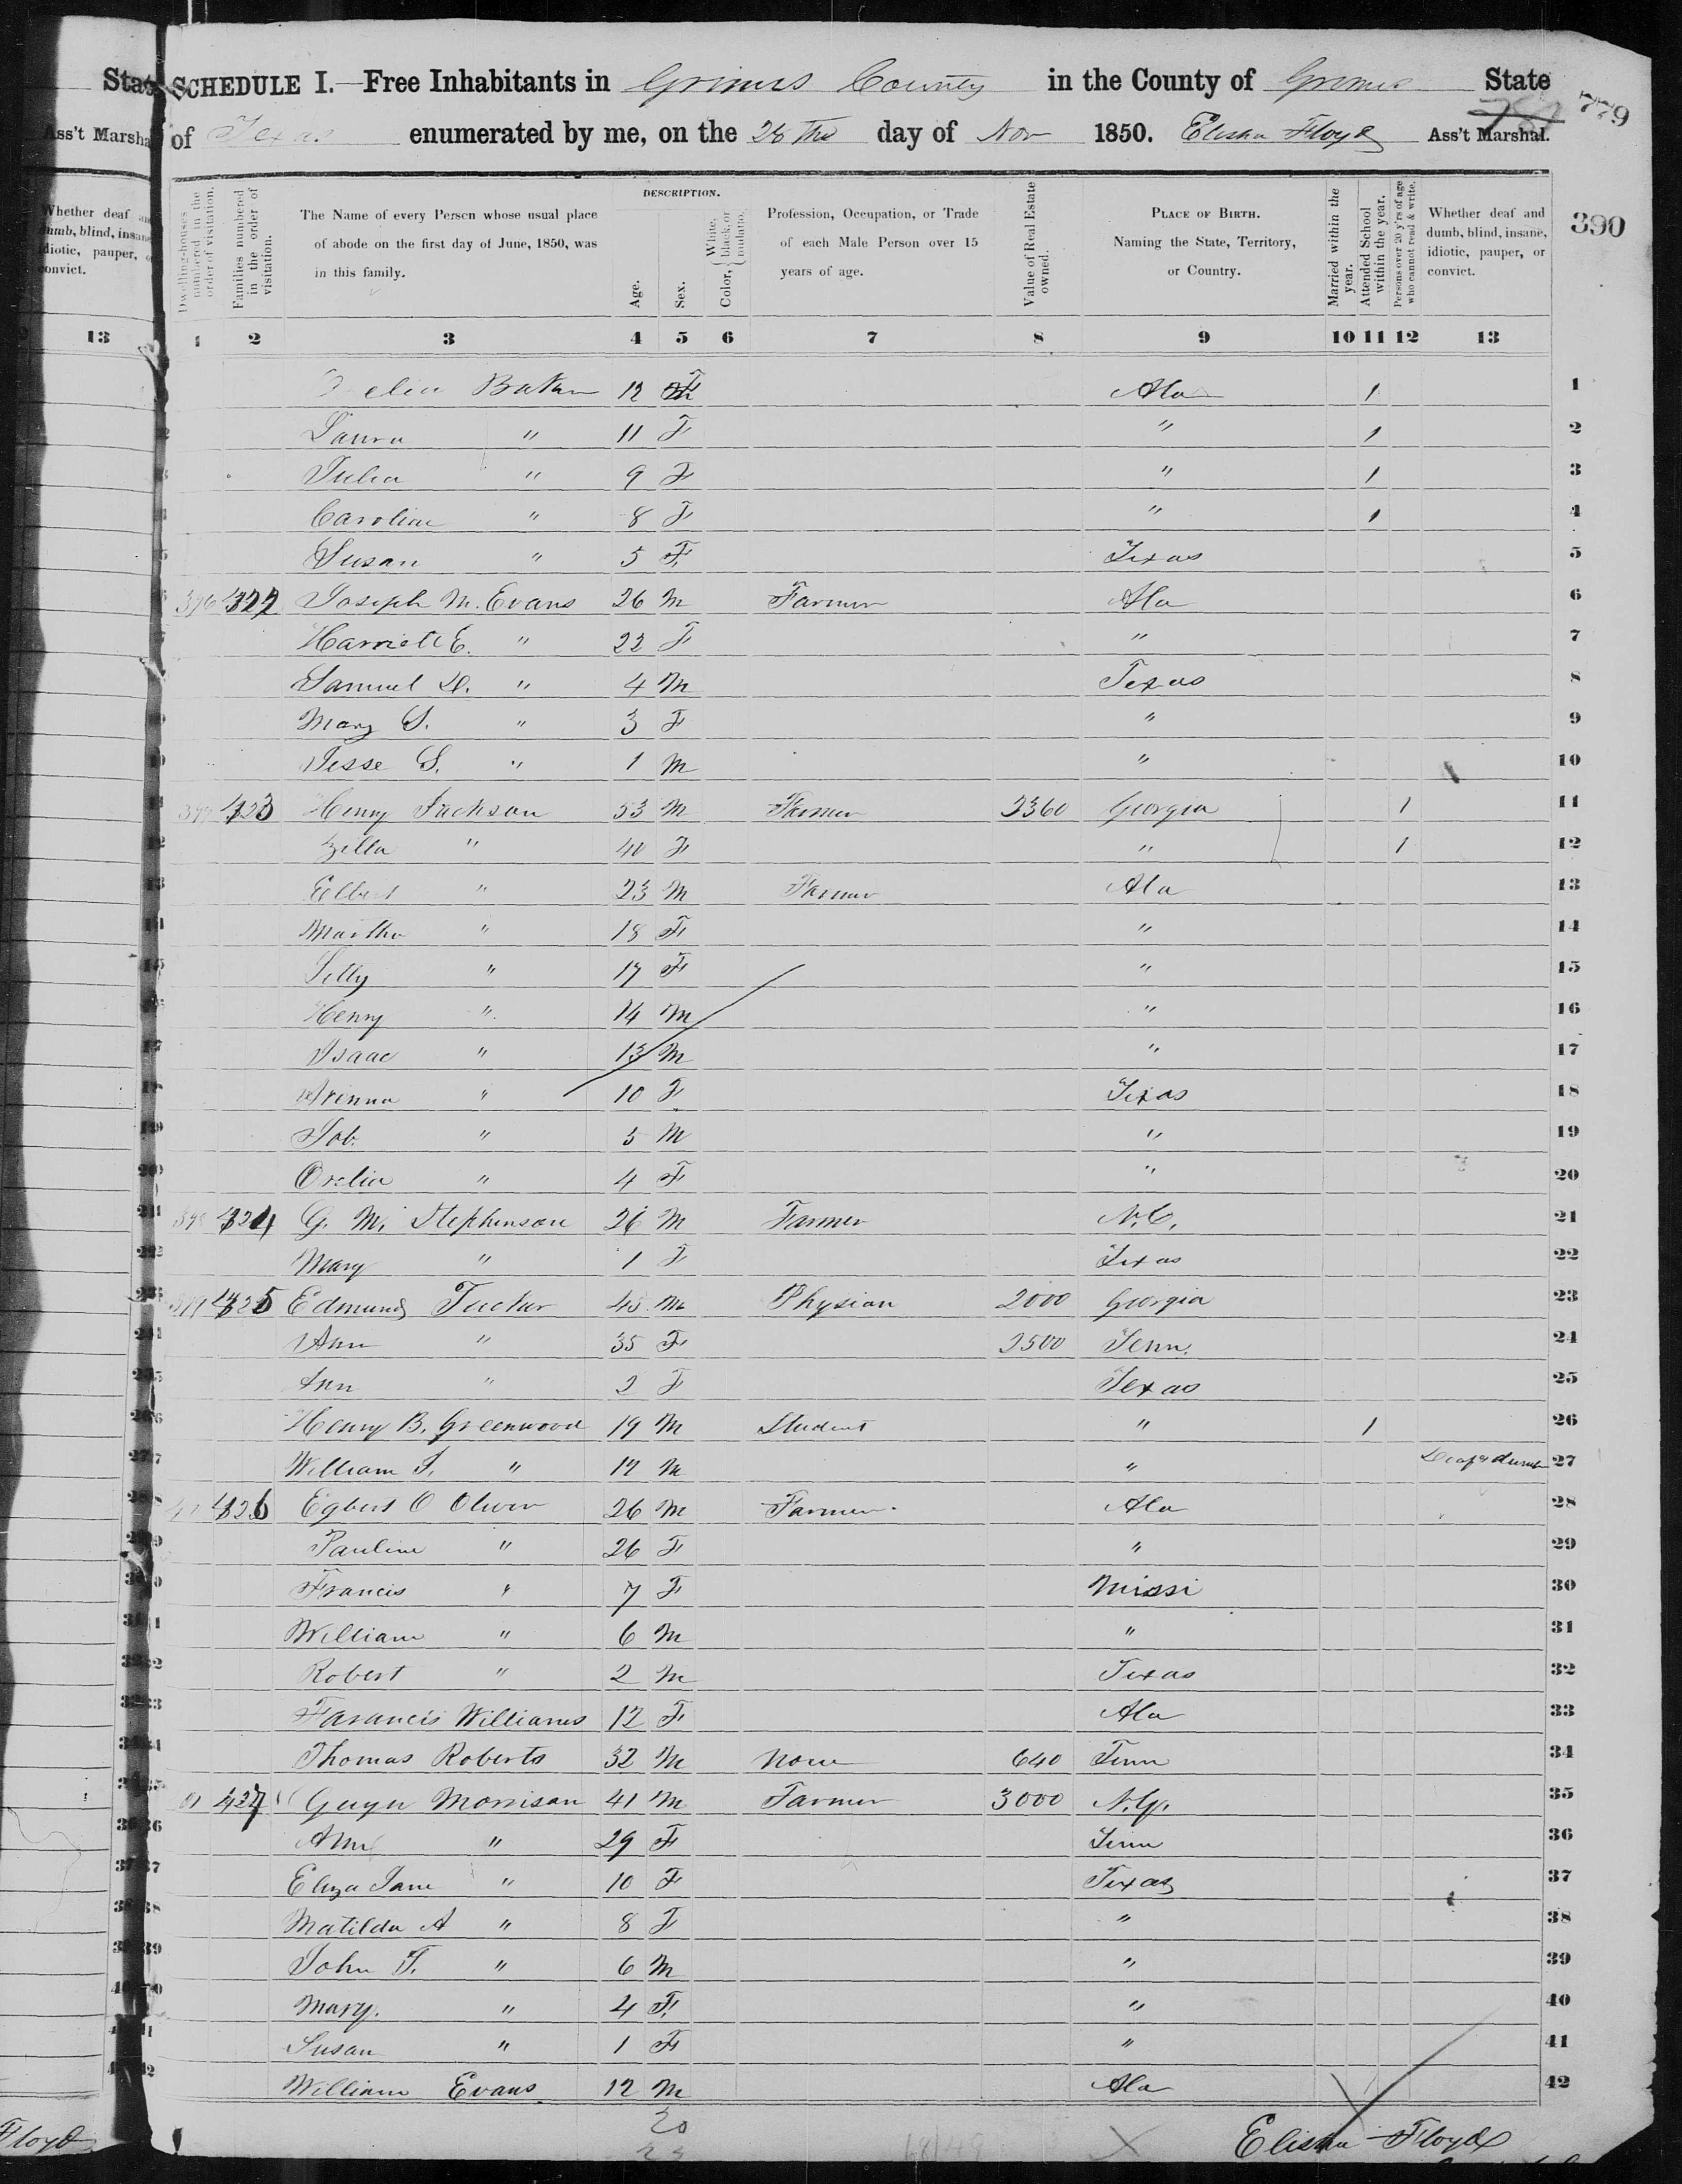 SCHEDULE I.—Free Inhabitants in Grimes County in the County of Grimes State
of Texas enumerated by me, on the 28th day of Nov 1850. Elisha Floyd Ass't Marshal.
779
390
Dwelling-houses numbered in the order of visitation.
Families numbered in the order of visitation.
The Name of every Person whose usual place of abode on the first day of June, 1850, was in this family.
DESCRIPTION.
Age.
Sex.
Color, { White, black, or mulatto.
Profession, Occupation, or Trade of each Male Person over 15 years of age.
Value of Real Estate owned.
PLACE OF BIRTH. Naming the State, Territory, or Country.
Married within the year.
Attended School within the year.
Persons over 20 y'rs of age who cannot read & write.
Whether deaf and dumb, blind, insane, idiotic, pauper, or convict.
1 2 3 4 5 6 7 8 9 10 11 12 13
12 F Ala 1 1
Laura " 11 F " 1 2
Julia " 9 F " 1 3
Caroline " 8 F " 1 4
Susan " 5 F Texas 5
Joseph M. Evans 26 M Farmer Ala 6
Harriett E. " 22 F " 7
Samuel H. " 4 M Texas 8
Mary S. " 3 F " 9
Jesse S. " 1 M " 10
423 Henry Jackson 53 M Farmer 2360 Georgia 1 11
Zilla " 40 F " 1 12
Elbert " 23 M Farmer Ala 13
Martha " 18 F " 14
" 17 F " 15
Henry " 14 M " 16
Isaac " 13 M " 17
" 10 F Texas 18
Job " 5 M " 19
Orelia " 4 F " 20
424 G. M. Stephenson 26 M Farmer N.C. 21
Mary " 1 F Texas 22
425 Edmund Tucker 45 M Physian 2000 Georgia 23
Ann " 35 F 2500 Tenn. 24
Ann " 2 F Texas 25
Henry B. Greenwood 19 M Student " 1 26
William T. " 17 M " Deaf & dumb 27
426 Egbert O Oliver 26 M Farmer Ala 28
Pauline " 26 F " 29
Francis " 7 F Missi 30
William " 6 M " 31
Robert " 2 M Texas 32
Farancis Williams 12 F Ala 33
Thomas Roberts 32 M None 640 Tenn 34
427 Guyn Morrison 41 M Farmer 3000 35
Ann " 29 F Tenn 36
Eliza Jane " 10 F Texas 37
Matilda A " 8 F " 38
John T. " 6 M " 39
Mary. " 4 F " 40
Susan " 1 F " 41
William Evans 12 M Ala 42
20
Elisha Floyd